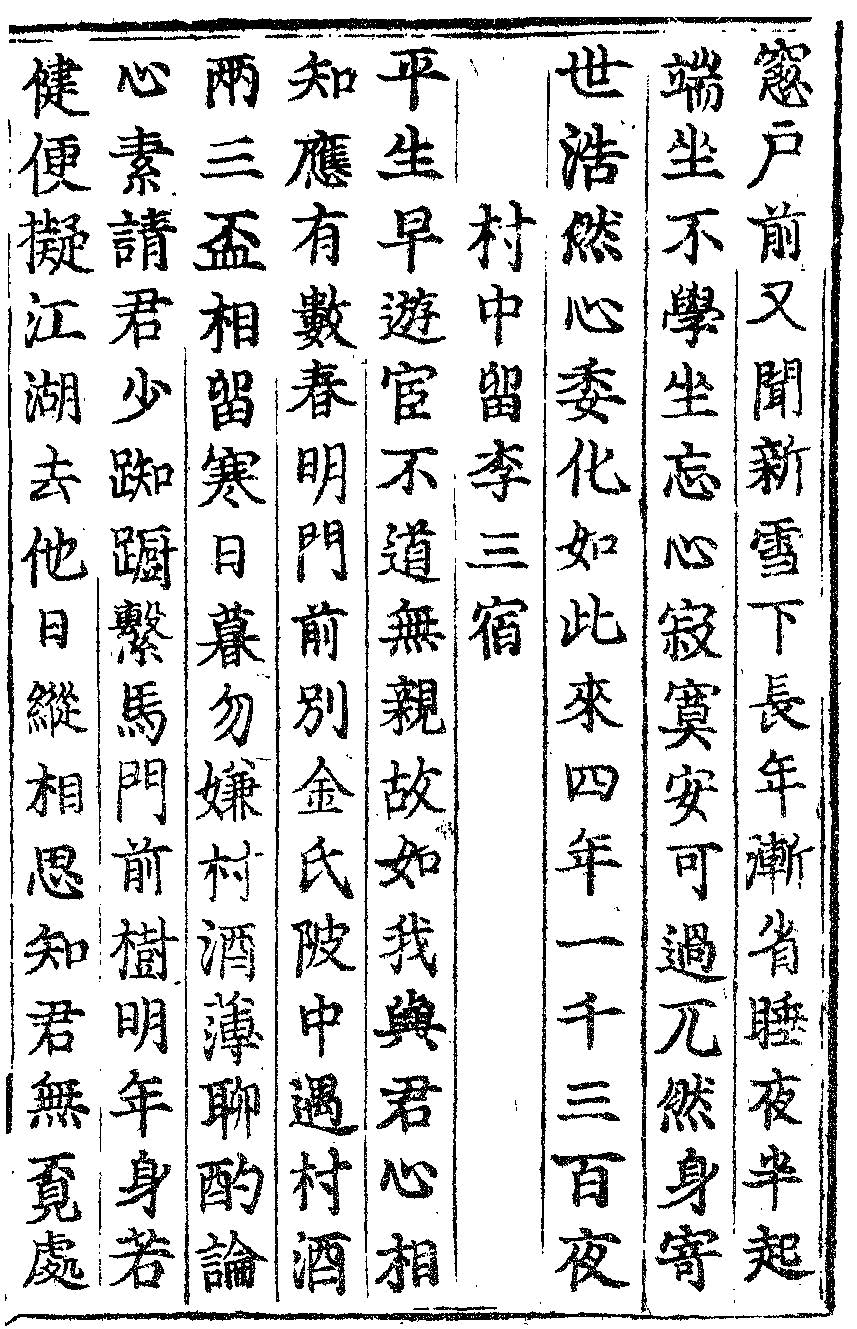 窻戸前又聞新雪下長年漸省睡夜半起
端坐不學坐忘心寂寞安可過兀然身寄
世浩然心委化如此來四年一千三百夜
村中留李三宿
平生早遊宦不道無親故如我與君心相
知應有數春明門前別金氏陂中遇村酒
兩三盃相留寒日暮勿嫌村酒薄聊酌論
心素請君少踟蹰繫馬門前樹明年身若
健便擬江湖去他日縱相思知君無覔處